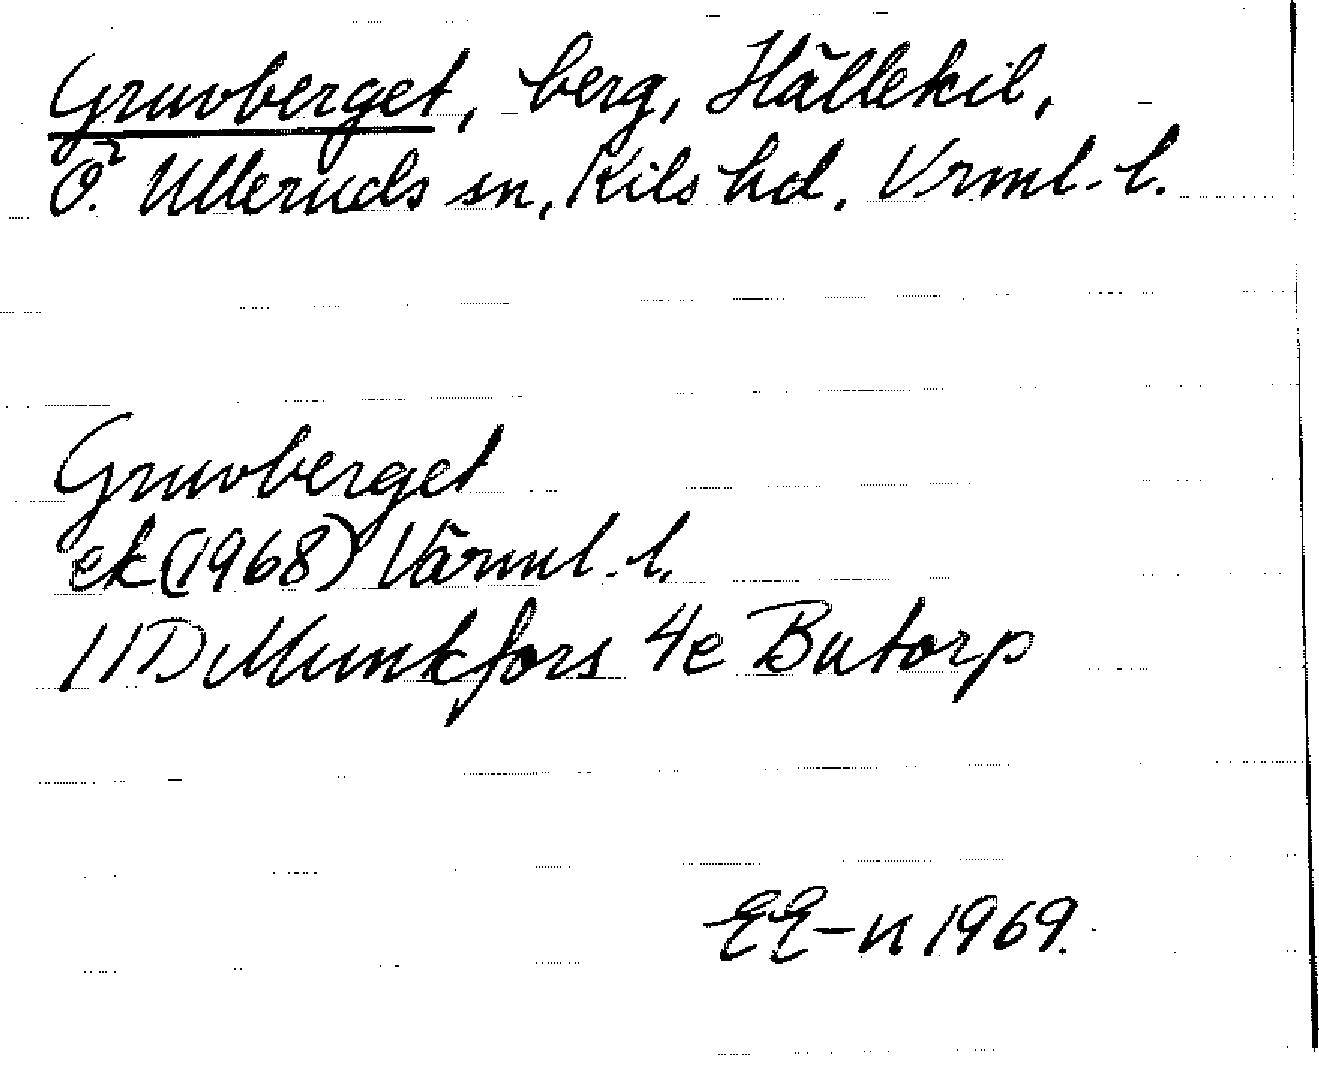 Gruvberget, berg, Hällekil,
Ö. Ulleruds sn, Kils hd. Vrml. l.
Gruvberget
ek (1968) Värml. l.
11D Munkfors 4e Butorp
EE-n 1969.